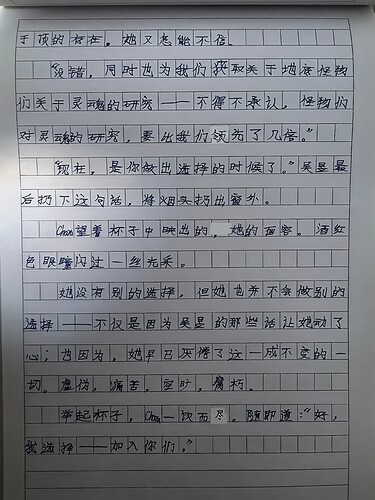 于顶的存在。她又怎能不信。
“没错，同时也为我们获取关于地底怪物
们关于灵魂的研究——不得不承认，怪物们
对灵魂的研究，要比我们领先了几倍。”
“现在，是你做出选择的时候了。”吴昱最
后扔下这句话，将烟头扔出窗外。
Chara望着杯子中映出的，她的面容。酒红
色眼瞳闪过一丝光采。
她没有别的选择，但她也并不会做别的
选择——不仅是因为吴昱的那些话让她动了
心；也因为，她早已厌倦了这一成不变的一
切。虚伪，痛苦，空时，腐朽。
举起杯子，Chara一饮而尽。随即道：“好，
我选择——加入你们。”